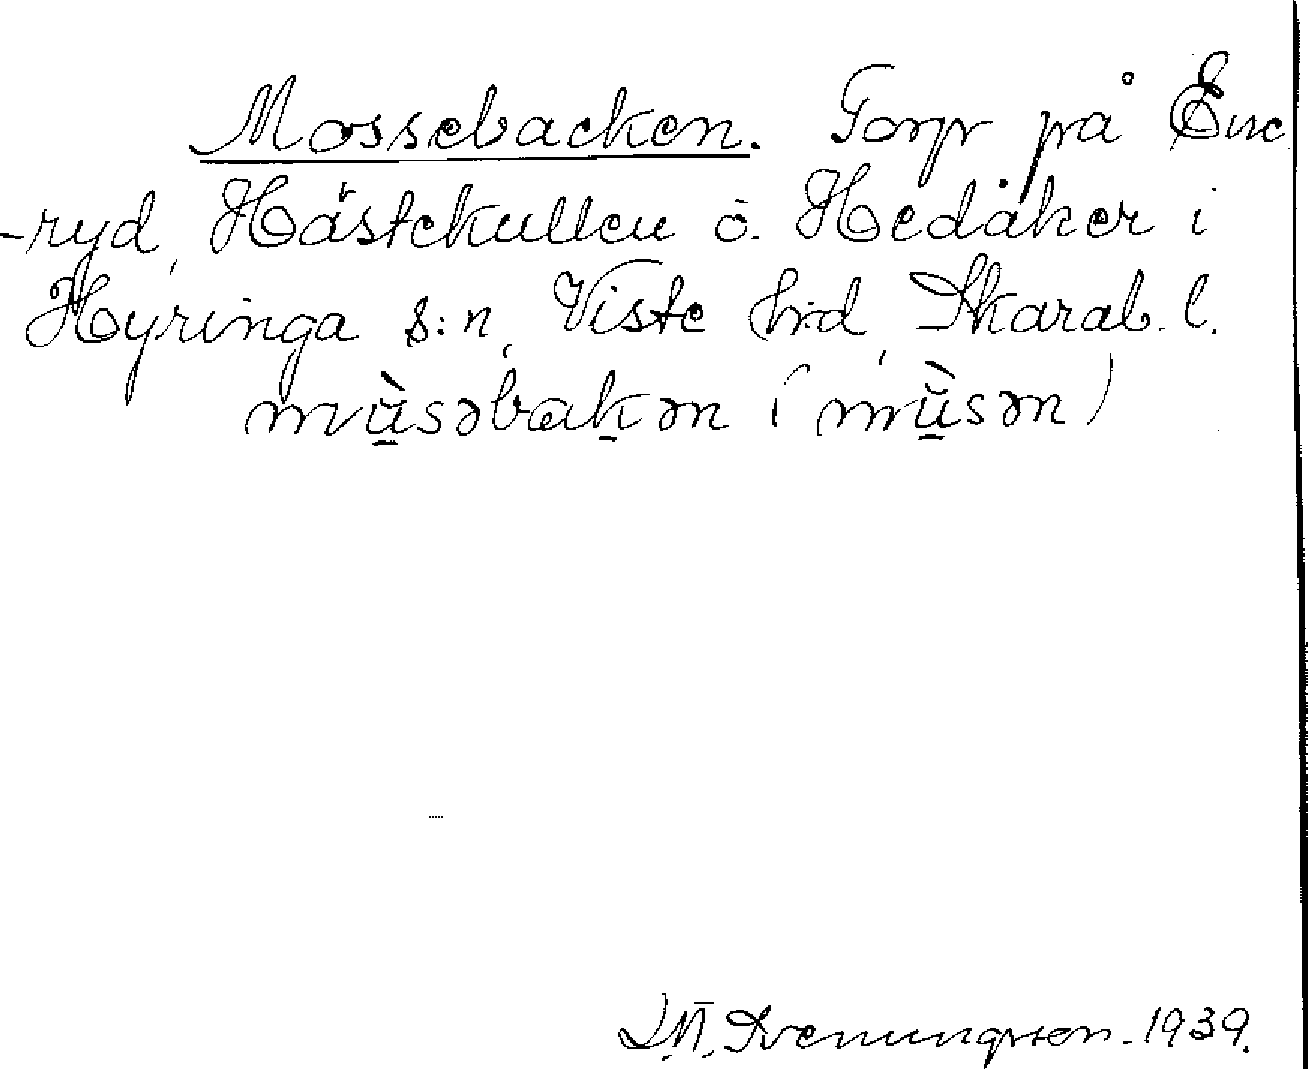 Mossebacken. Torp på Ene
-ryd, Hästekullen ö. Hedåker i
Hyringa s:n, Viste hrd, Skarab. l.
mùsəbakən (mùsən)
1939.